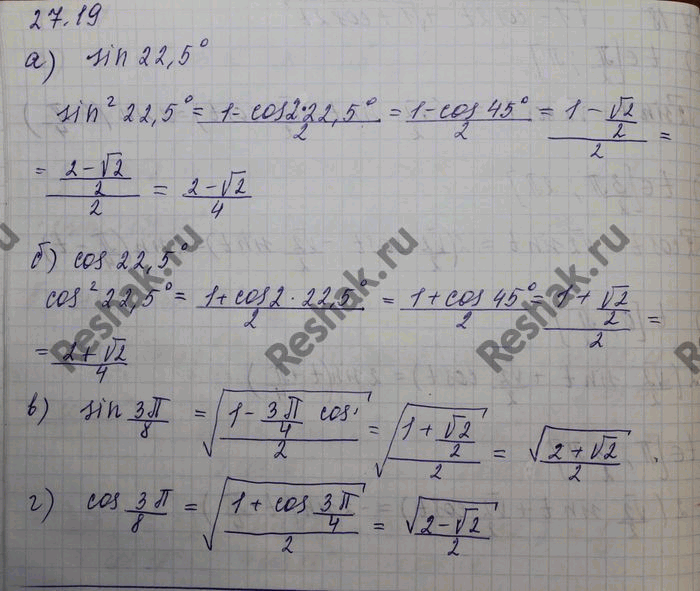 27.19
а) sin 22,5°
sin² 22,5° = (1 - cos 2·22,5°)/2 = (1 - cos 45°)/2 = (1 - √2/2)/2 =
= ((2-√2)/2)/2 = (2-√2)/4
б) cos 22,5°
cos² 22,5° = (1 + cos 2·22,5°)/2 = (1 + cos 45°)/2 = (1 + √2/2)/2 =
= (2+√2)/4
в) sin 3π/8 = √((1 - 3π/4 cos)/2) = √((1 + √2/2)/2) = √(2+√2)/2
г) cos 3π/8 = √((1 + cos 3π/4)/2) = √(2-√2)/2
Reshak.ru
Reshak.ru
Reshak.ru